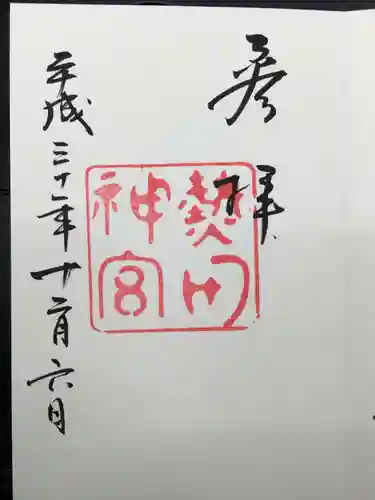 参拝
熱田
神宮
平成三十年十二月六日